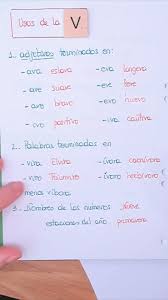 Usos de la V
1. adjetivos terminados en:
- ava esclava - evo longevo
- ave suave - eve leve
- avo bravo - evo nuevo
- ivo positivo - iva cautiva
2. Palabras terminadas en
- viro Elvira - ívoro carnívoro
- viro Triunviro - ívora herbívora
menos víbora
3. Nombres de los números nueve
estaciones del año primavera